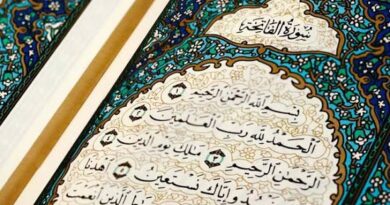 سُورَةُ الفَاتِحَةِ
بِسْمِ اللَّهِ الرَّحْمَٰنِ الرَّحِيمِ ١
الْحَمْدُ لِلَّهِ رَبِّ الْعَالَمِينَ ٢
الرَّحْمَٰنِ الرَّحِيمِ ٣ مَالِكِ يَوْمِ الدِّينِ ٤
نَعْبُدُ وَإِيَّاكَ نَسْتَعِينُ ٥ اهْدِنَا
صِرَاطَ الَّذِينَ أَنْعَمْتَ